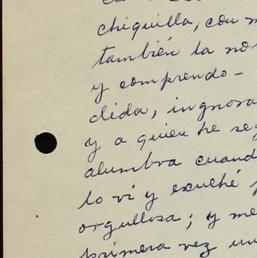 chiquilla, con m
también la no
y comprendo -
dida, ingnora
y a quien he se
alumbra cuand
lo vi y escuché
orgullosa; y me
primera vez un